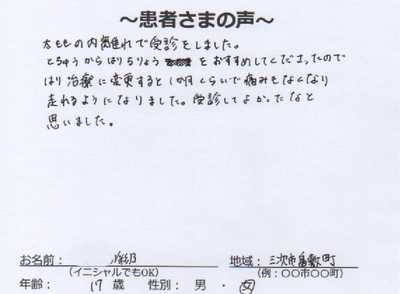 ～患者さまの声～
太ももの肉離れで受診をしました。
とちゅうからはりちりょうをおすすめしてくださったので
はり治療に変更すると1か月くらいで痛みもなくなり
走れるようになりました。受診してよかったなと
思いました。
お名前： 地域：三次市畠敷町
(イニシャルでもOK) (例：〇〇市〇〇町)
年齢： 17歳 性別： 男 ・ 女